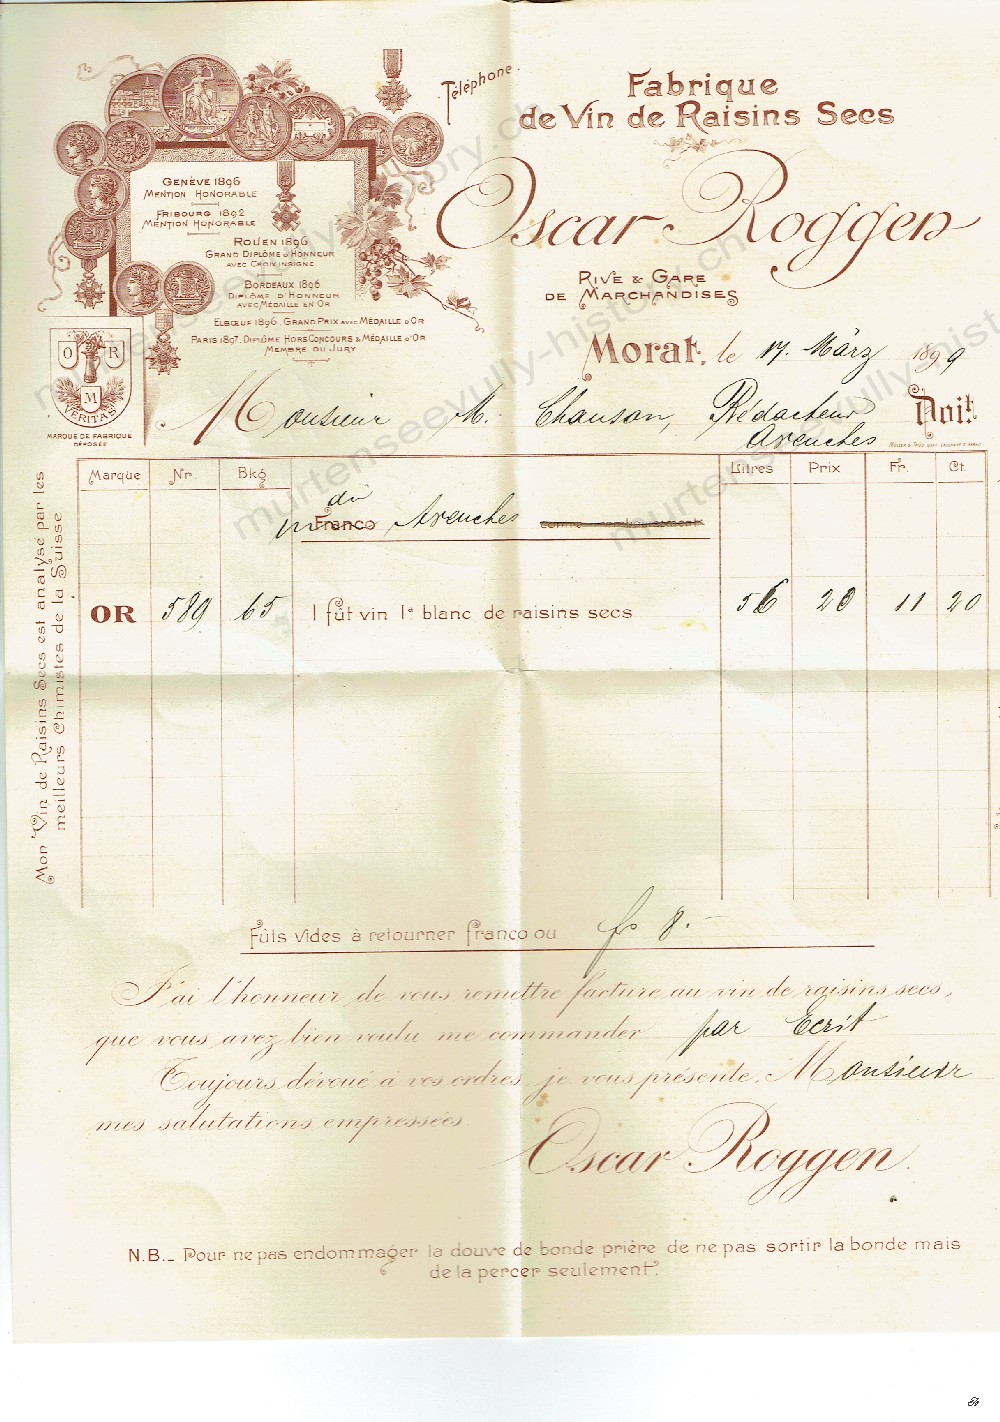 Téléphone
Fabrique
de Vin de Raisins Secs
Oscar Roggen
Rive & Gare
de Marchandises
Genève 1896
Mention Honorable
Fribourg 1892
Mention Honorable
Rouen 1896
Grand Diplôme d'Honneur
avec Croix insigne
Bordeaux 1896
Diplôme d'Honneur
avec Médaille en Or
Elbœuf 1896. Grand Prix avec Médaille d'Or
Paris 1897. Diplôme Hors Concours & Médaille d'Or
Membre du Jury
O R
M
VERITAS
Marque de Fabrique
déposée
Morat, le 17. März 1899
Monsieur M. Chanson, Rédacteur Doit
Avenches
Marque Nr. Bkg Litres Prix Fr. Ct
du
Franco Avenches contre remboursement
OR 589 65 1 fût vin Iª blanc de raisins secs 56 20 11 20
Mon Vin de Raisins Secs est analysé par les
meilleurs Chimistes de la Suisse
Fûts vides à retourner franco ou fs 8.-
J'ai l'honneur de vous remettre facture au vin de raisins secs,
que vous avez bien voulu me commander par Ecrit
Toujours dévoué à vos ordres, je vous présente, Monsieur
mes salutations empressées.
Oscar Roggen.
N.B._ Pour ne pas endommager la douve de bonde prière de ne pas sortir la bonde mais
de la percer seulement.
murtenseevully-history.ch
murtenseevully-history.ch